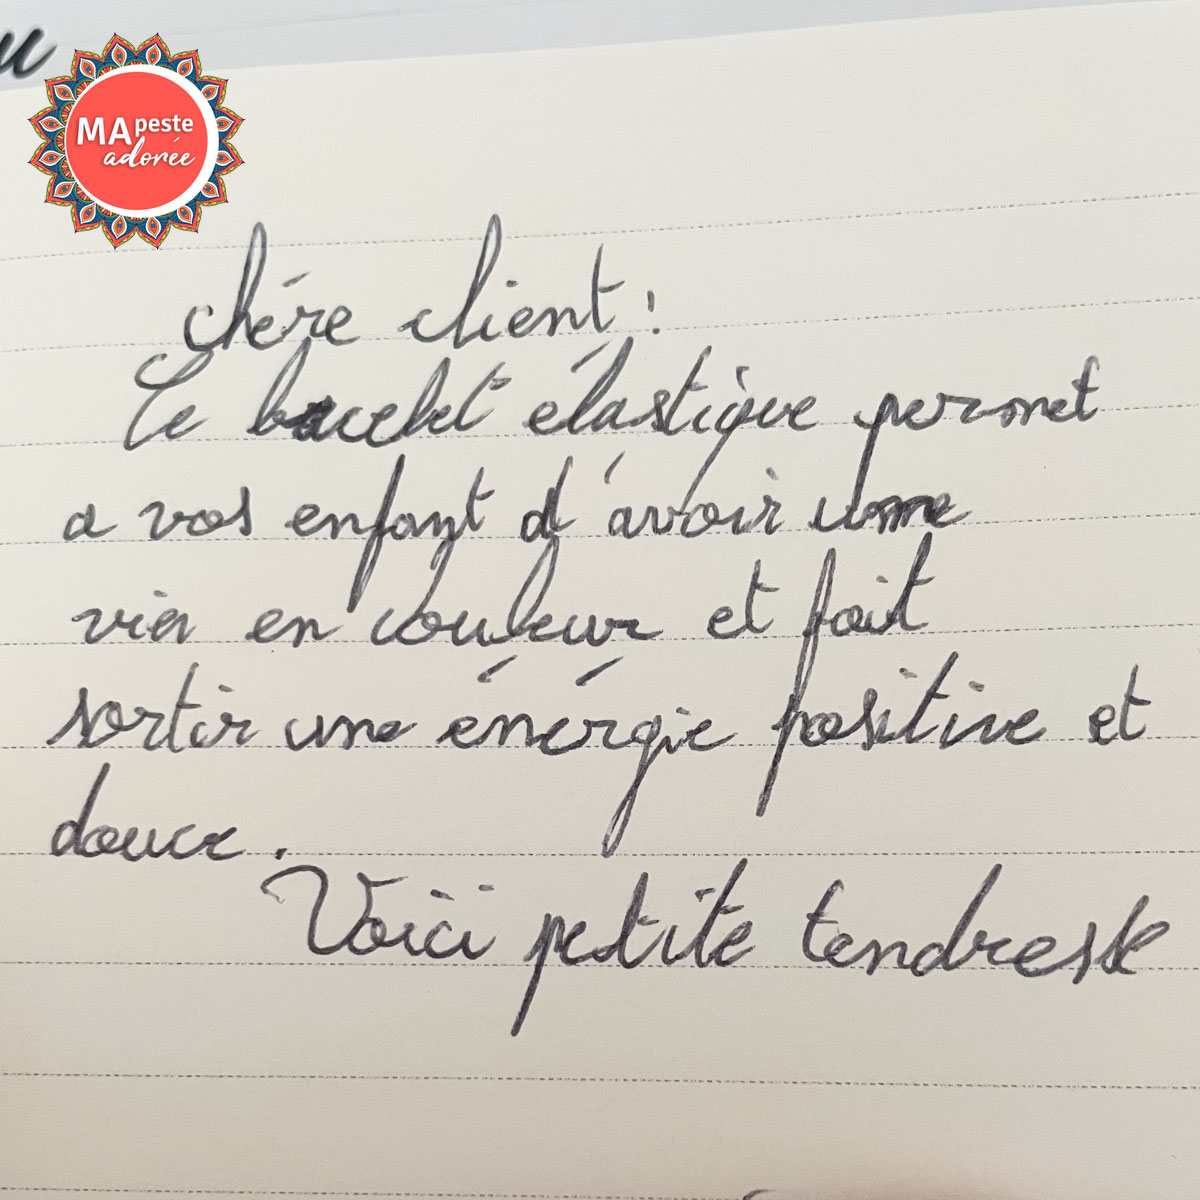 MA peste
adorée
chére client :
Ce bracelet élastique permet
a vos enfant d'avoir une
vie en couleur et fait
sortir une énérgie positive et
douce.
Voici petite tendresse